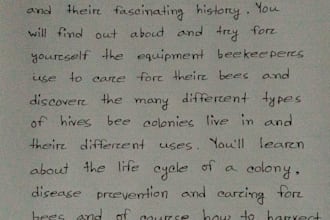 and their fascinating history. You
will find out about and try for
yourself the equipment beekeepers
use to care for their bees and
discover the many different types
of hives bee colonies live in and
their different uses. You'll learn
about the life cycle of a colony,
disease prevention and caring for
bees and of course how to harvest